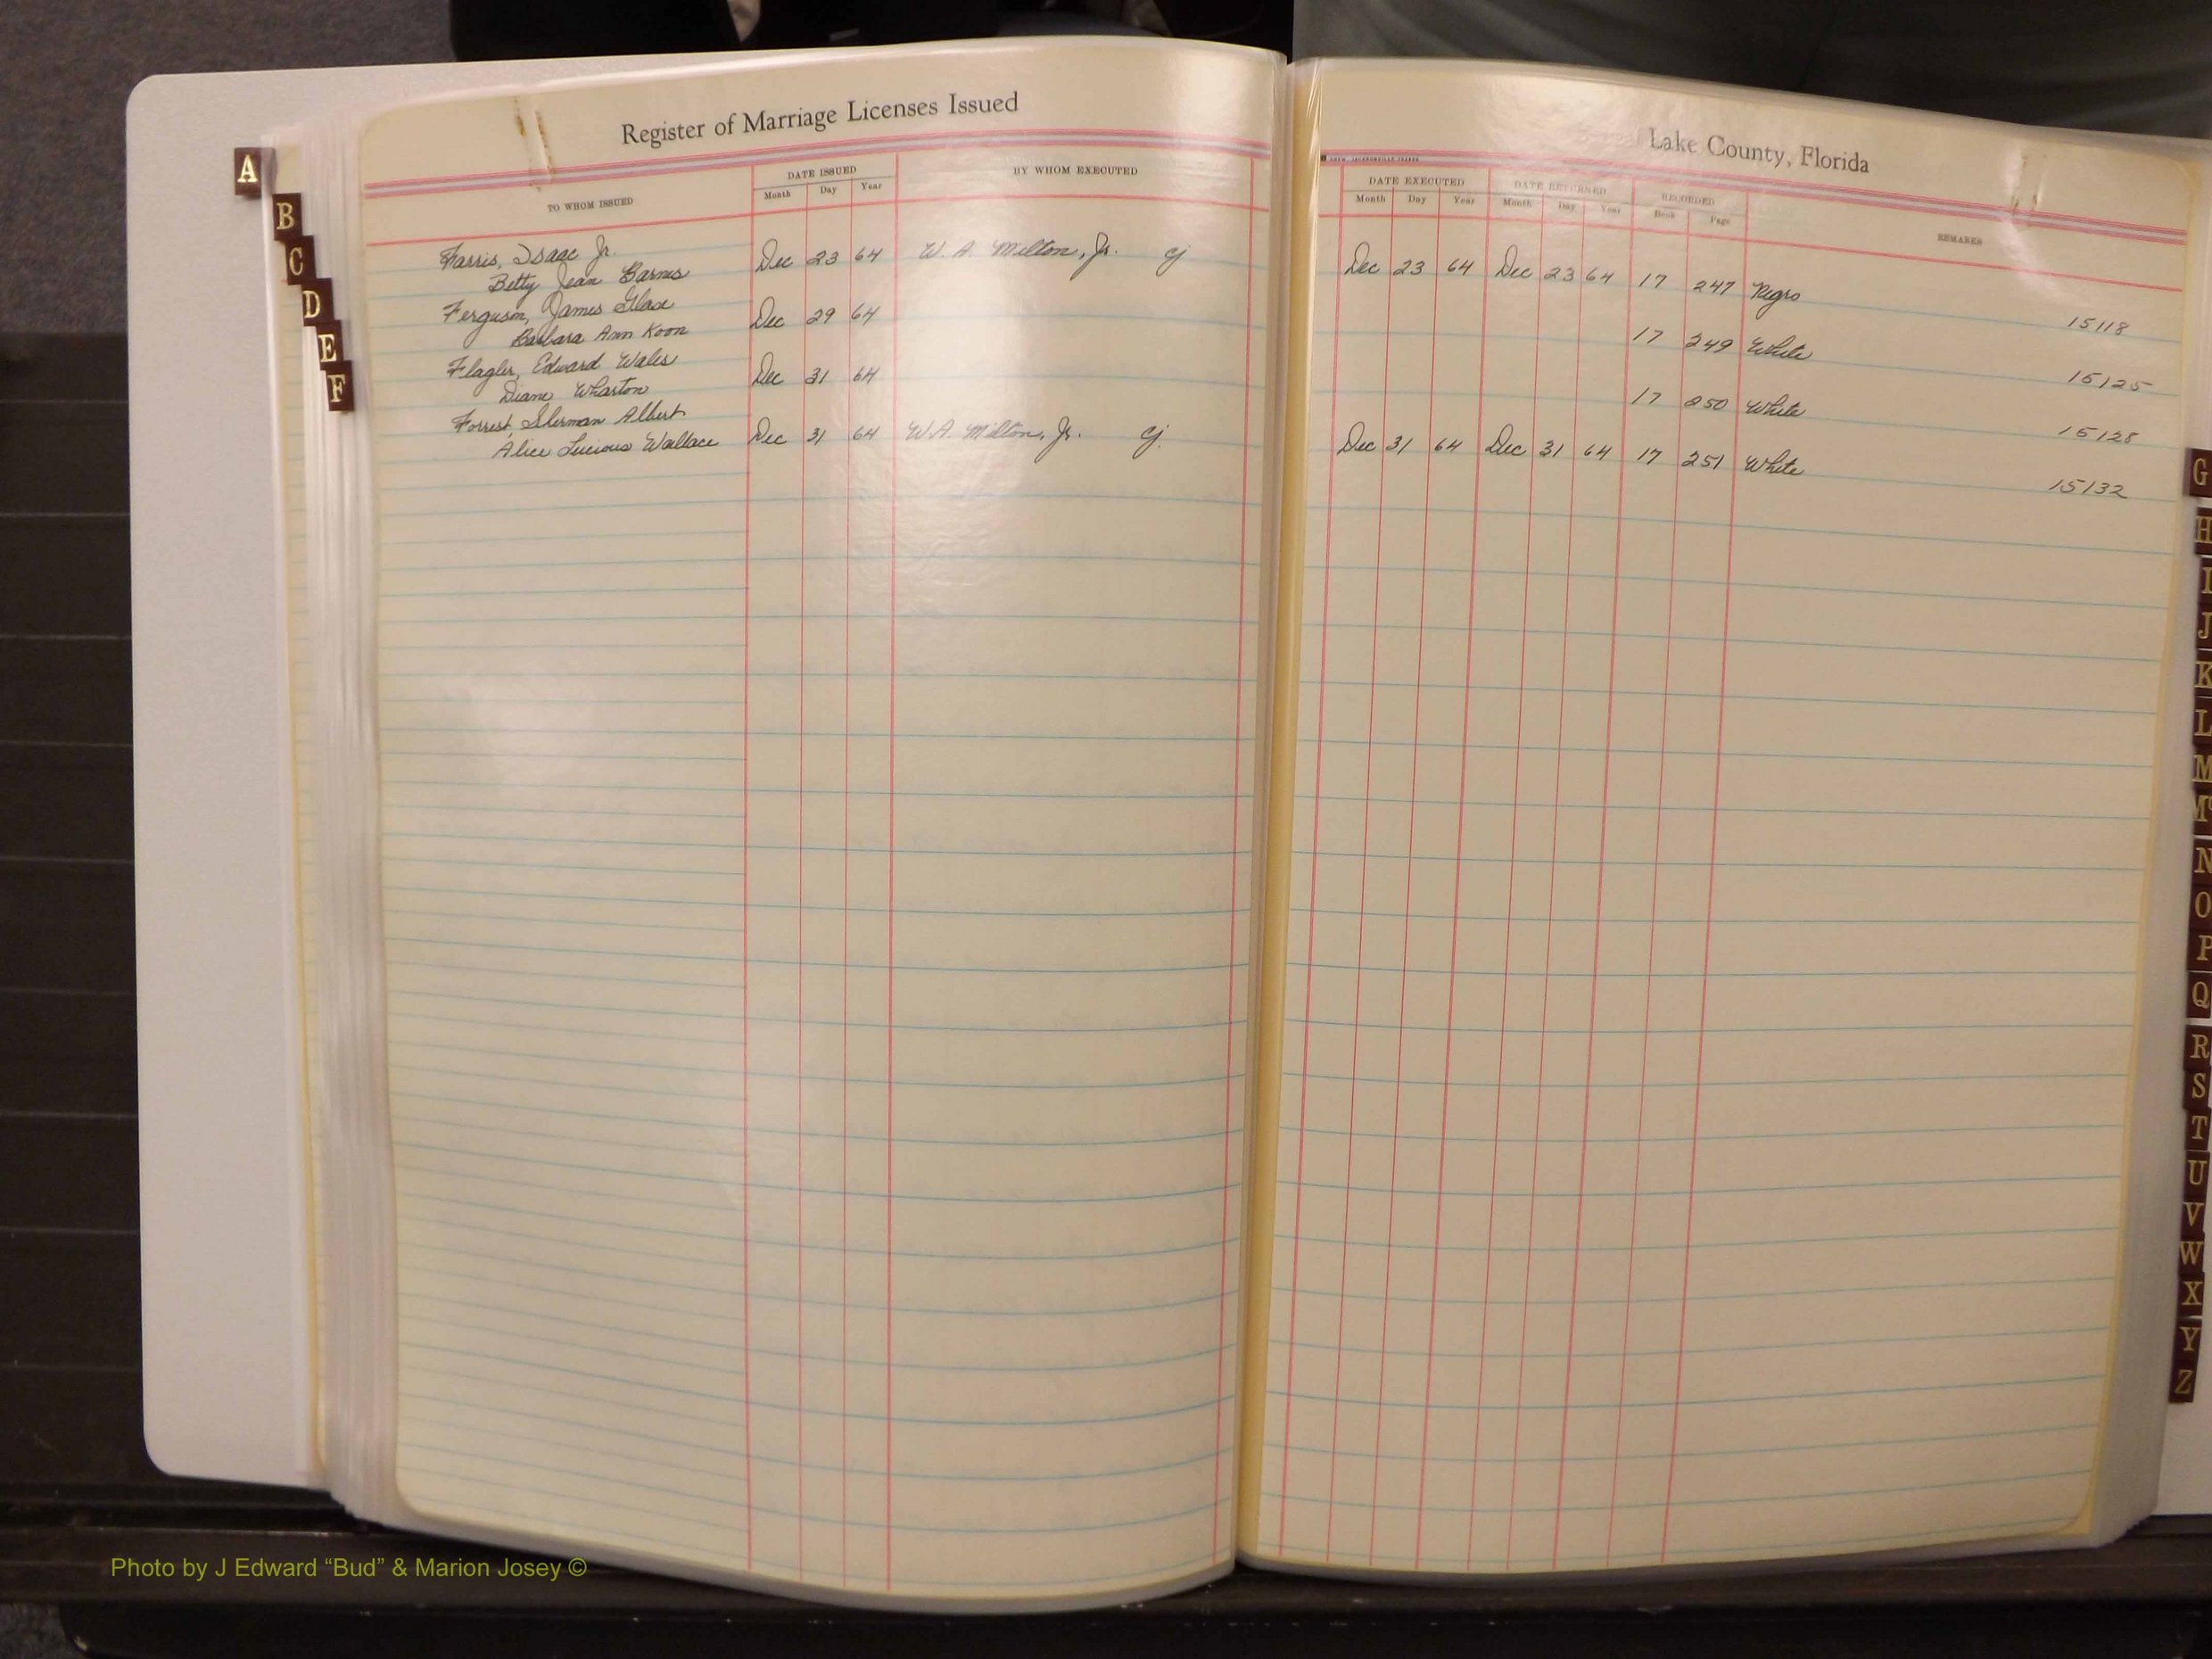 Register of Marriage Licenses Issued
Lake County, Florida
TO WHOM ISSUED
DATE ISSUED
Month Day Year
BY WHOM EXECUTED
DATE EXECUTED
Month Day Year
DATE RETURNED
Month Day Year
RECORDED
Book Page
REMARKS
Farris, Isaac Jr. Dec 23 64 W. A. Milton, Jr. cj Dec 23 64 Dec 23 64 17 247 Negro
Betty Jean Barnes 15118
Ferguson, James Dec 29 64 17 249 White
Barbara Ann Koon 15125
Flagler, Edward Wales Dec 31 64 17 250 White
Diane Wharton 15128
Forrest, Sherman Albert
Alice Lucious Wallace Dec 31 64 W.A. Milton, Jr. cj. Dec 31 64 Dec 31 64 17 251 White
15132
A
B
C
D
E
F
G
H
I
J
K
L
M
N
O
P
Q
R
S
T
U
V
W
X
Y
Z
Photo by J Edward “Bud” & Marion Josey ©